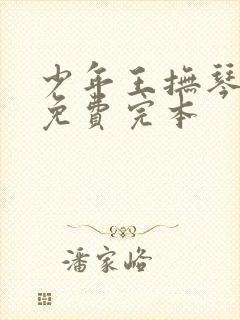 少年王撫琴
免費完本
潘家峪